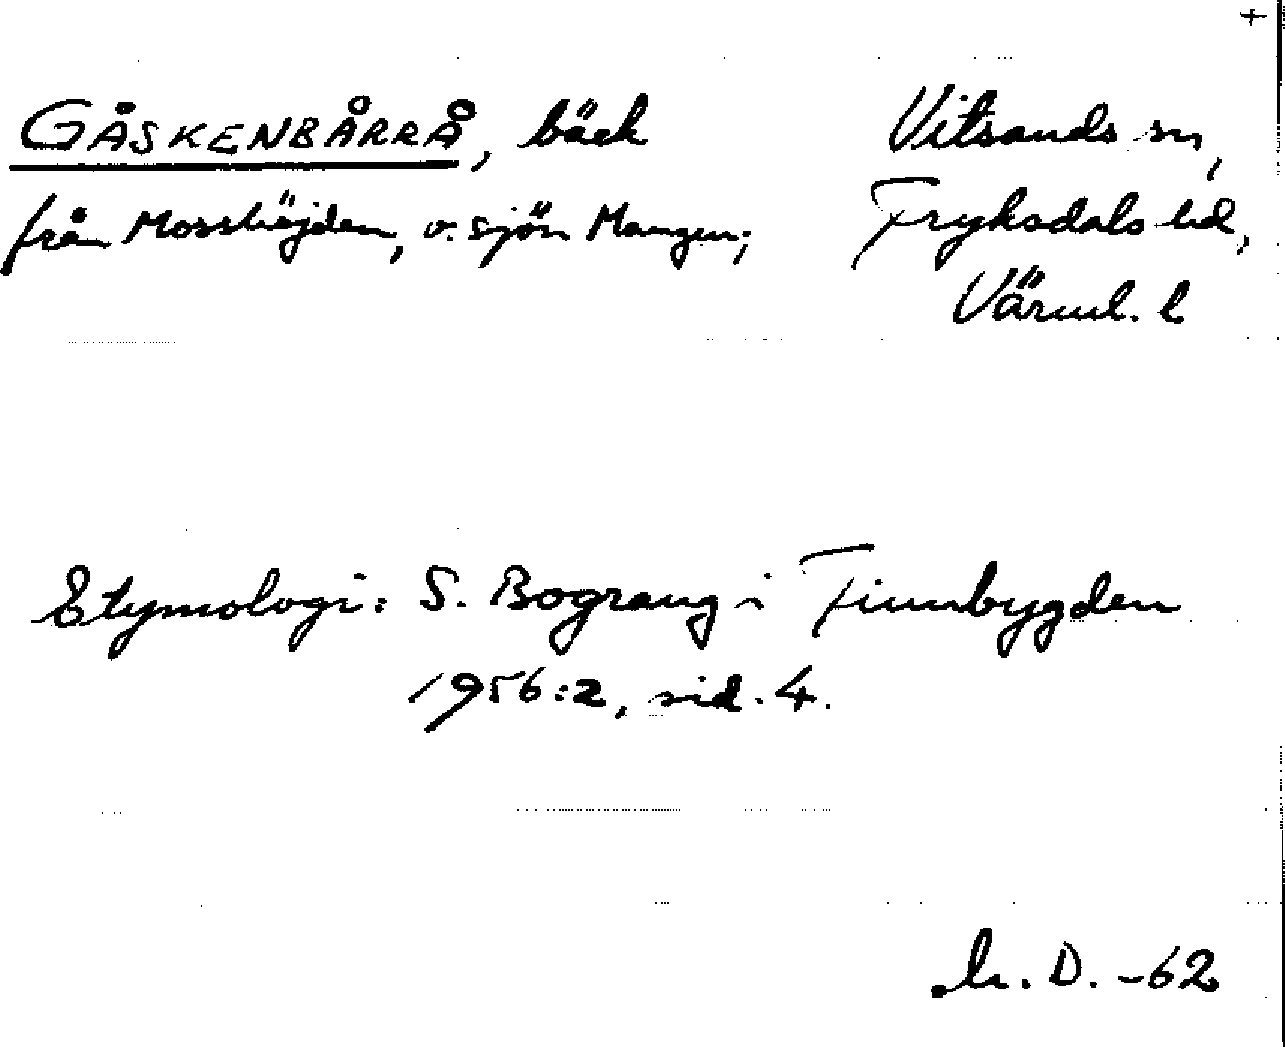 +
GÅSKENBÅRRÅ, bäck
från Mosshöjden, v. sjön Mangen;
Vitsands sn,
Fryksdals hd,
Värml. l
Etymologi: S. Bograng i Finnbygden
1956:2, sid. 4.
D. -62